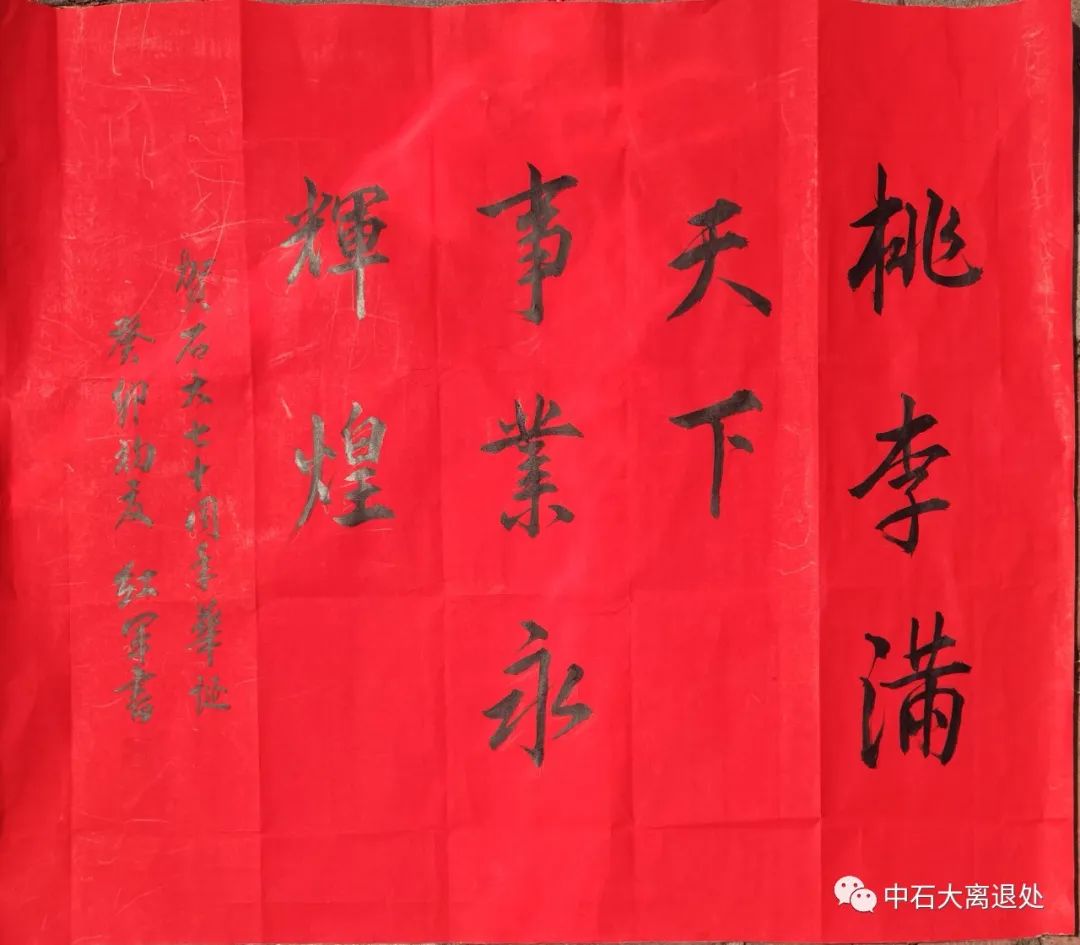 桃李满
天下
事業永
輝煌
贺石大七十周年華诞
癸卯初夏 红军書
中石大离退处